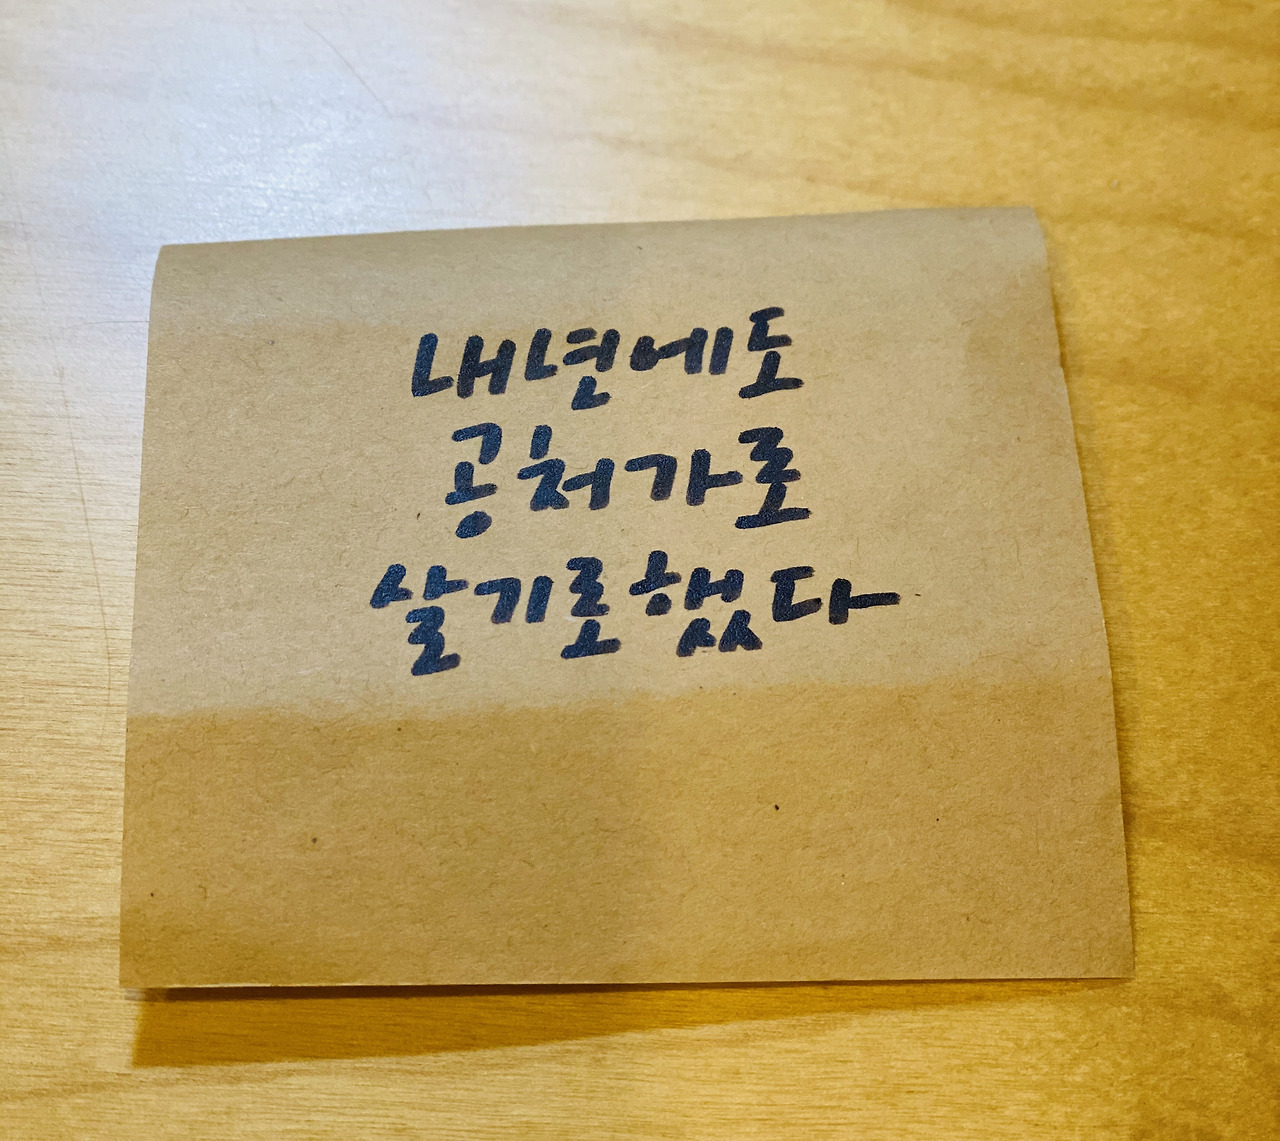 내년에도
공처가로
살기로했다